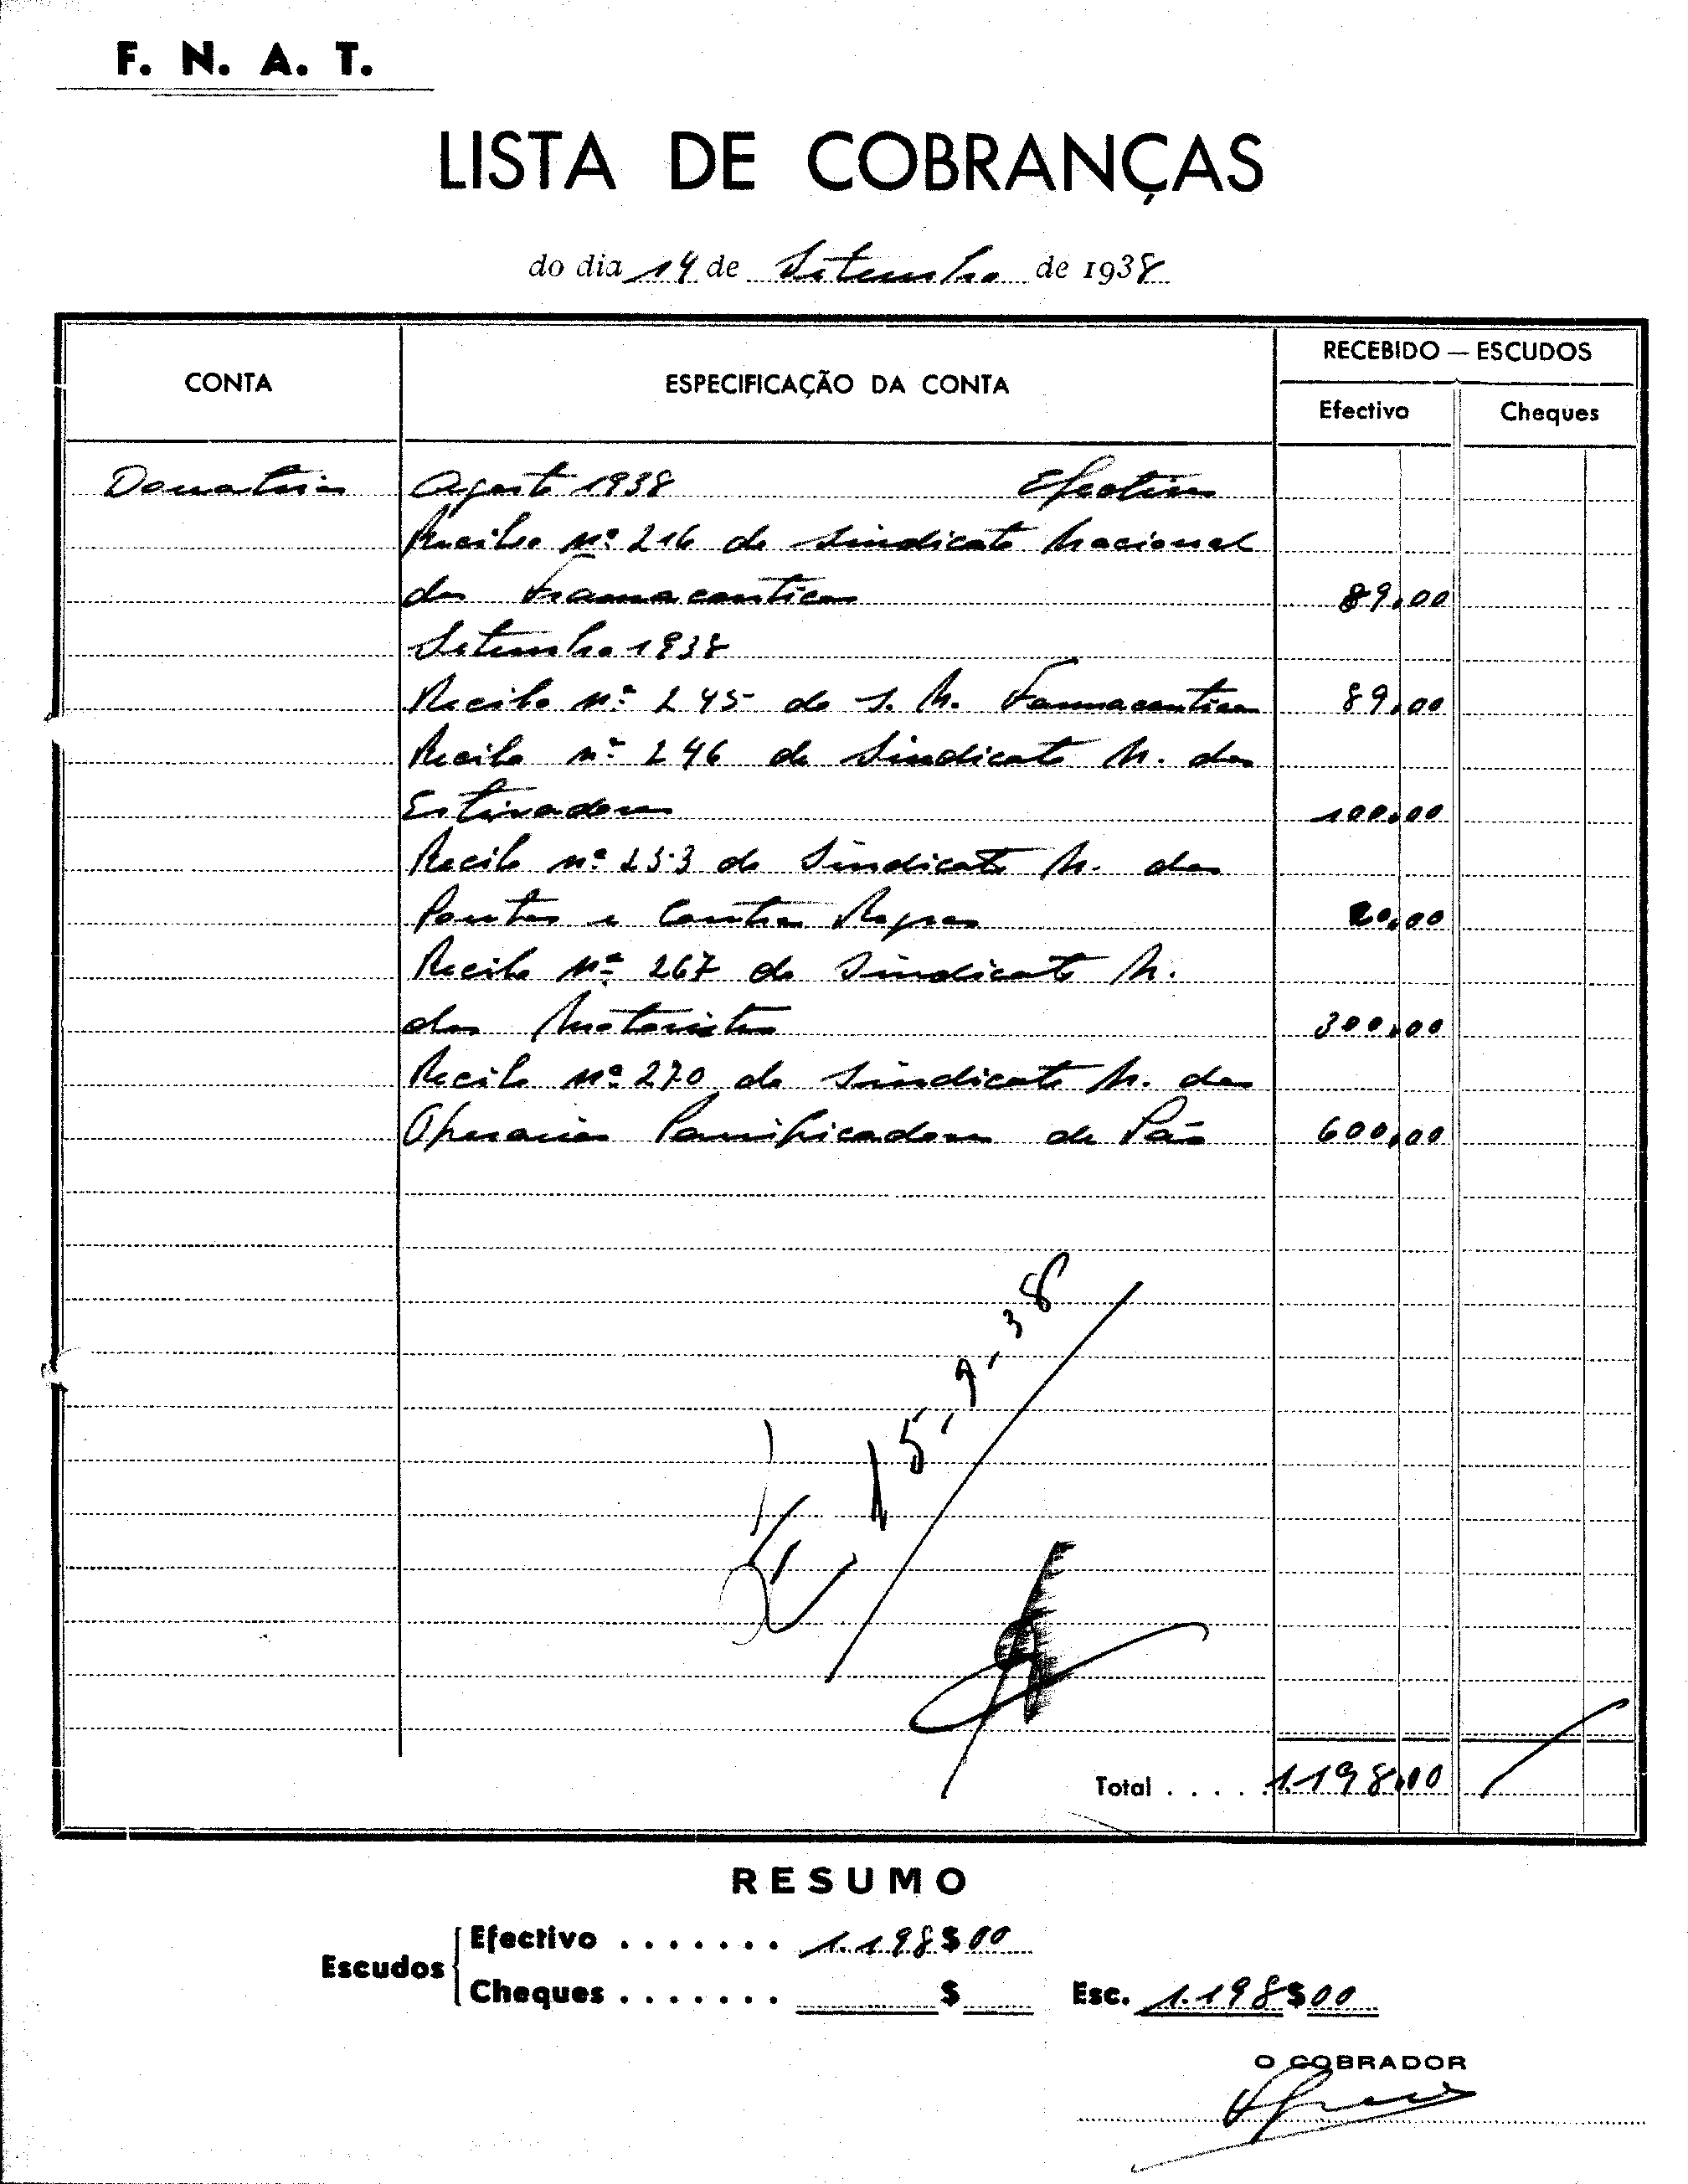 F. N. A. T.
LISTA DE COBRANÇAS
do dia 14 de Setembro de 1938
CONTA
ESPECIFICAÇÃO DA CONTA
RECEBIDO — ESCUDOS
Efectivo
Cheques
Donativos Agosto 1938 Efectivo
Recibo nº 216 do Sindicato Nacional
dos 89,00
Setembro 1938
Recibo nº 245 do S. N. Farmaceuticos 89,00
Recibo nº 246 do Sindicato N. dos
Estivadores 100,00
Recibo nº 253 do Sindicato N. dos
e Contra Regras 20,00
Recibo nº 267 do Sindicato N.
dos Motoristas 300,00
Recibo nº 270 do Sindicato N. dos
Operarios Panificadores de Pão 600,00
15-9-38
Total . . . . . 1.198,00
RESUMO
Escudos
Efectivo . . . . . . . 1.198$00
Cheques . . . . . . . $
Esc. 1.198$00
O COBRADOR